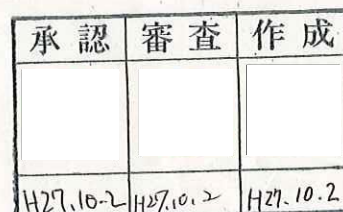 承認 審査 作成
H27.10.2 H27.10.2 H27.10.2